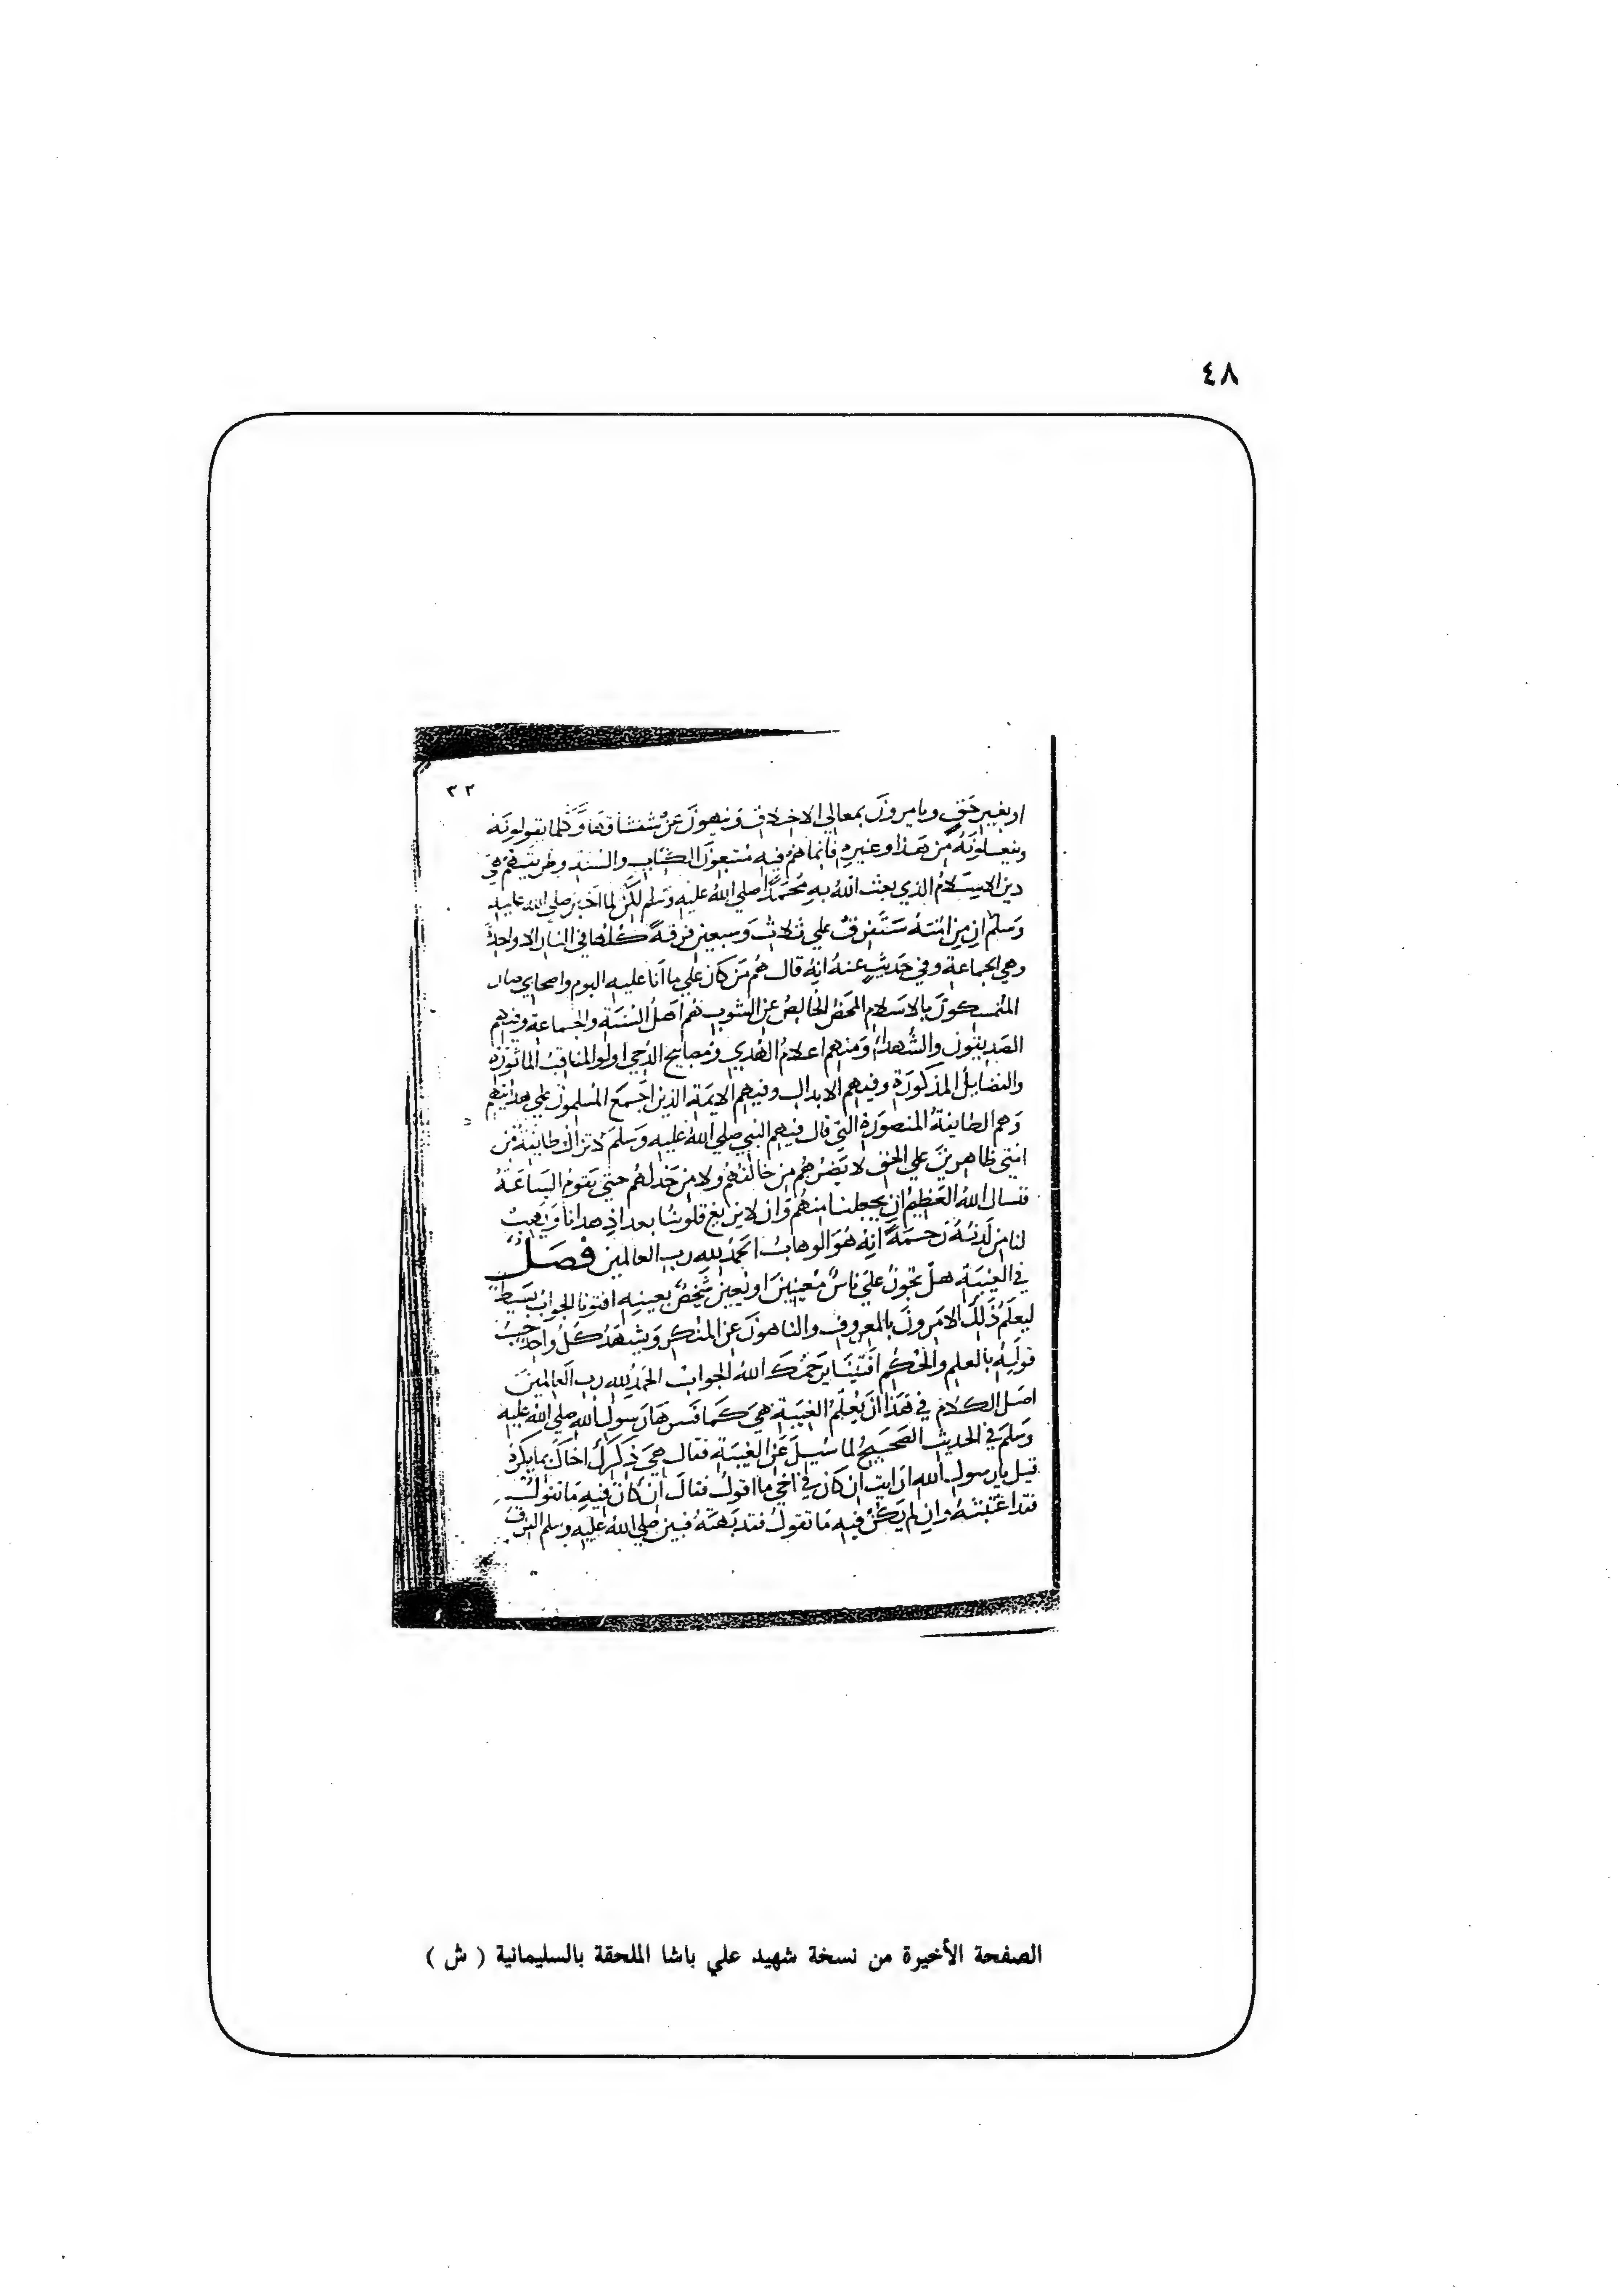 ٤٨
٣٢
او بغير حق ويامرون بمعالي الاخلاق وينهون عن سفسافها وكلما يقولونه
ويفعلونه من هذا وغيره فانما هم فيه متبعون الكتاب والسنة وطريقتهم هي
دين الاسلام الذي بعث الله به محمدًا صلي الله عليه وسلم لكن لما اخبر صلي الله عليه
وسلم ان من امته ستفرق علي ثلاث وسبعين فرقة كلها في النار الا واحدة
وهي الجماعة وفي حديث عنه انه قال هم من كان علي ما انا عليه اليوم واصحابي صار
المتمسكون بالاسلام المحض الخالص عن الشوب هم اهل السنة والجماعة وفيهم
الصديقون والشهداء ومنهم اعلام الهدي ومصابيح الدجي اولوا المناقب الماثورة
والفضايل المذكورة وفيهم الابدال وفيهم الايمة الذين اجمع المسلمون علي هدايتهم
وهم الطايفة المنصورة التي قال فيهم النبي صلي الله عليه وسلم لا تزال طايفة من
امتي ظاهرين علي الحق لا يضرهم من خالفهم ولا من خذلهم حتي يقوم الساعة
فنسال الله العظيم ان يجعلنا منهم وان لا يزيغ قلوبنا بعد اذ هدانا ويهب
لنا من لدنه رحمة انه هو الوهاب الحمد لله رب العالمين فصل
في الغيبة هل تجوز علي ناس معينين او تعين شخص بعينه افتونا الجواب بسيط
ليعلم ذلك الامرون بالمعروف والناهون عن المنكر ويشهد كل واحد بحسب
قوله بالعلم والحكم افتينا يرحمك الله الجواب الحمد لله رب العالمين
اصل الكلام في هذا ان يعلم الغيبة هي كما فسرها رسول الله صلي الله عليه
وسلم في الحديث الصحيح لما سيل عن الغيبة فقال هي ذكرك اخاك بما يكره
قيل يا رسول الله ارايت ان كان في اخي ما اقول فقال ان كان فيه ما تقول
فقد اغتبته وان لم يكن فيه ما تقول فقد بهته فبين صلي الله عليه وسلم الفرق
الصفحة الأخيرة من نسخة شهيد علي باشا الملحقة بالسليمانية ( ش )